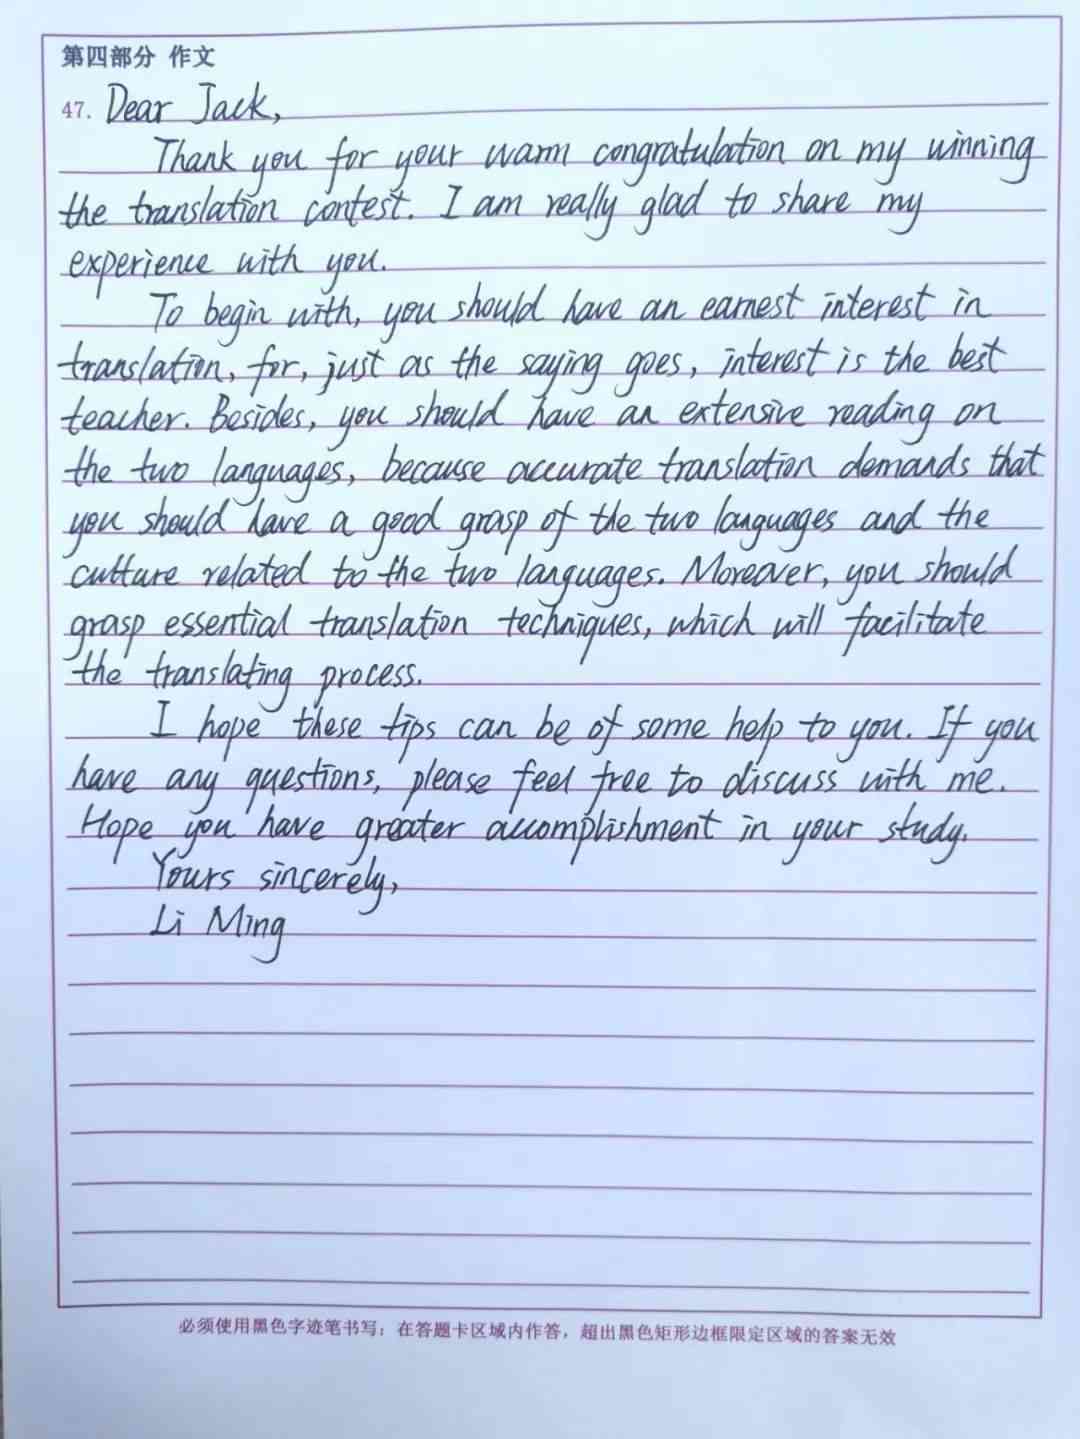 第四部分 作文
47. Dear Jack,
Thank you for your warm congratulation on my winning
the translation contest. I am really glad to share my
experience with you.
To begin with, you should have an earnest interest in
translation, for, just as the saying goes, interest is the best
teacher. Besides, you should have an extensive reading on
the two languages, because accurate translation demands that
you should have a good grasp of the two languages and the
culture related to the two languages. Moreover, you should
grasp essential translation techniques, which will facilitate
the translating process.
I hope these tips can be of some help to you. If you
have any questions, please feel free to discuss with me.
Hope you have greater accomplishment in your study.
Yours sincerely,
Li Ming
必须使用黑色字迹笔书写；在答题卡区域内作答，超出黑色矩形边框限定区域的答案无效